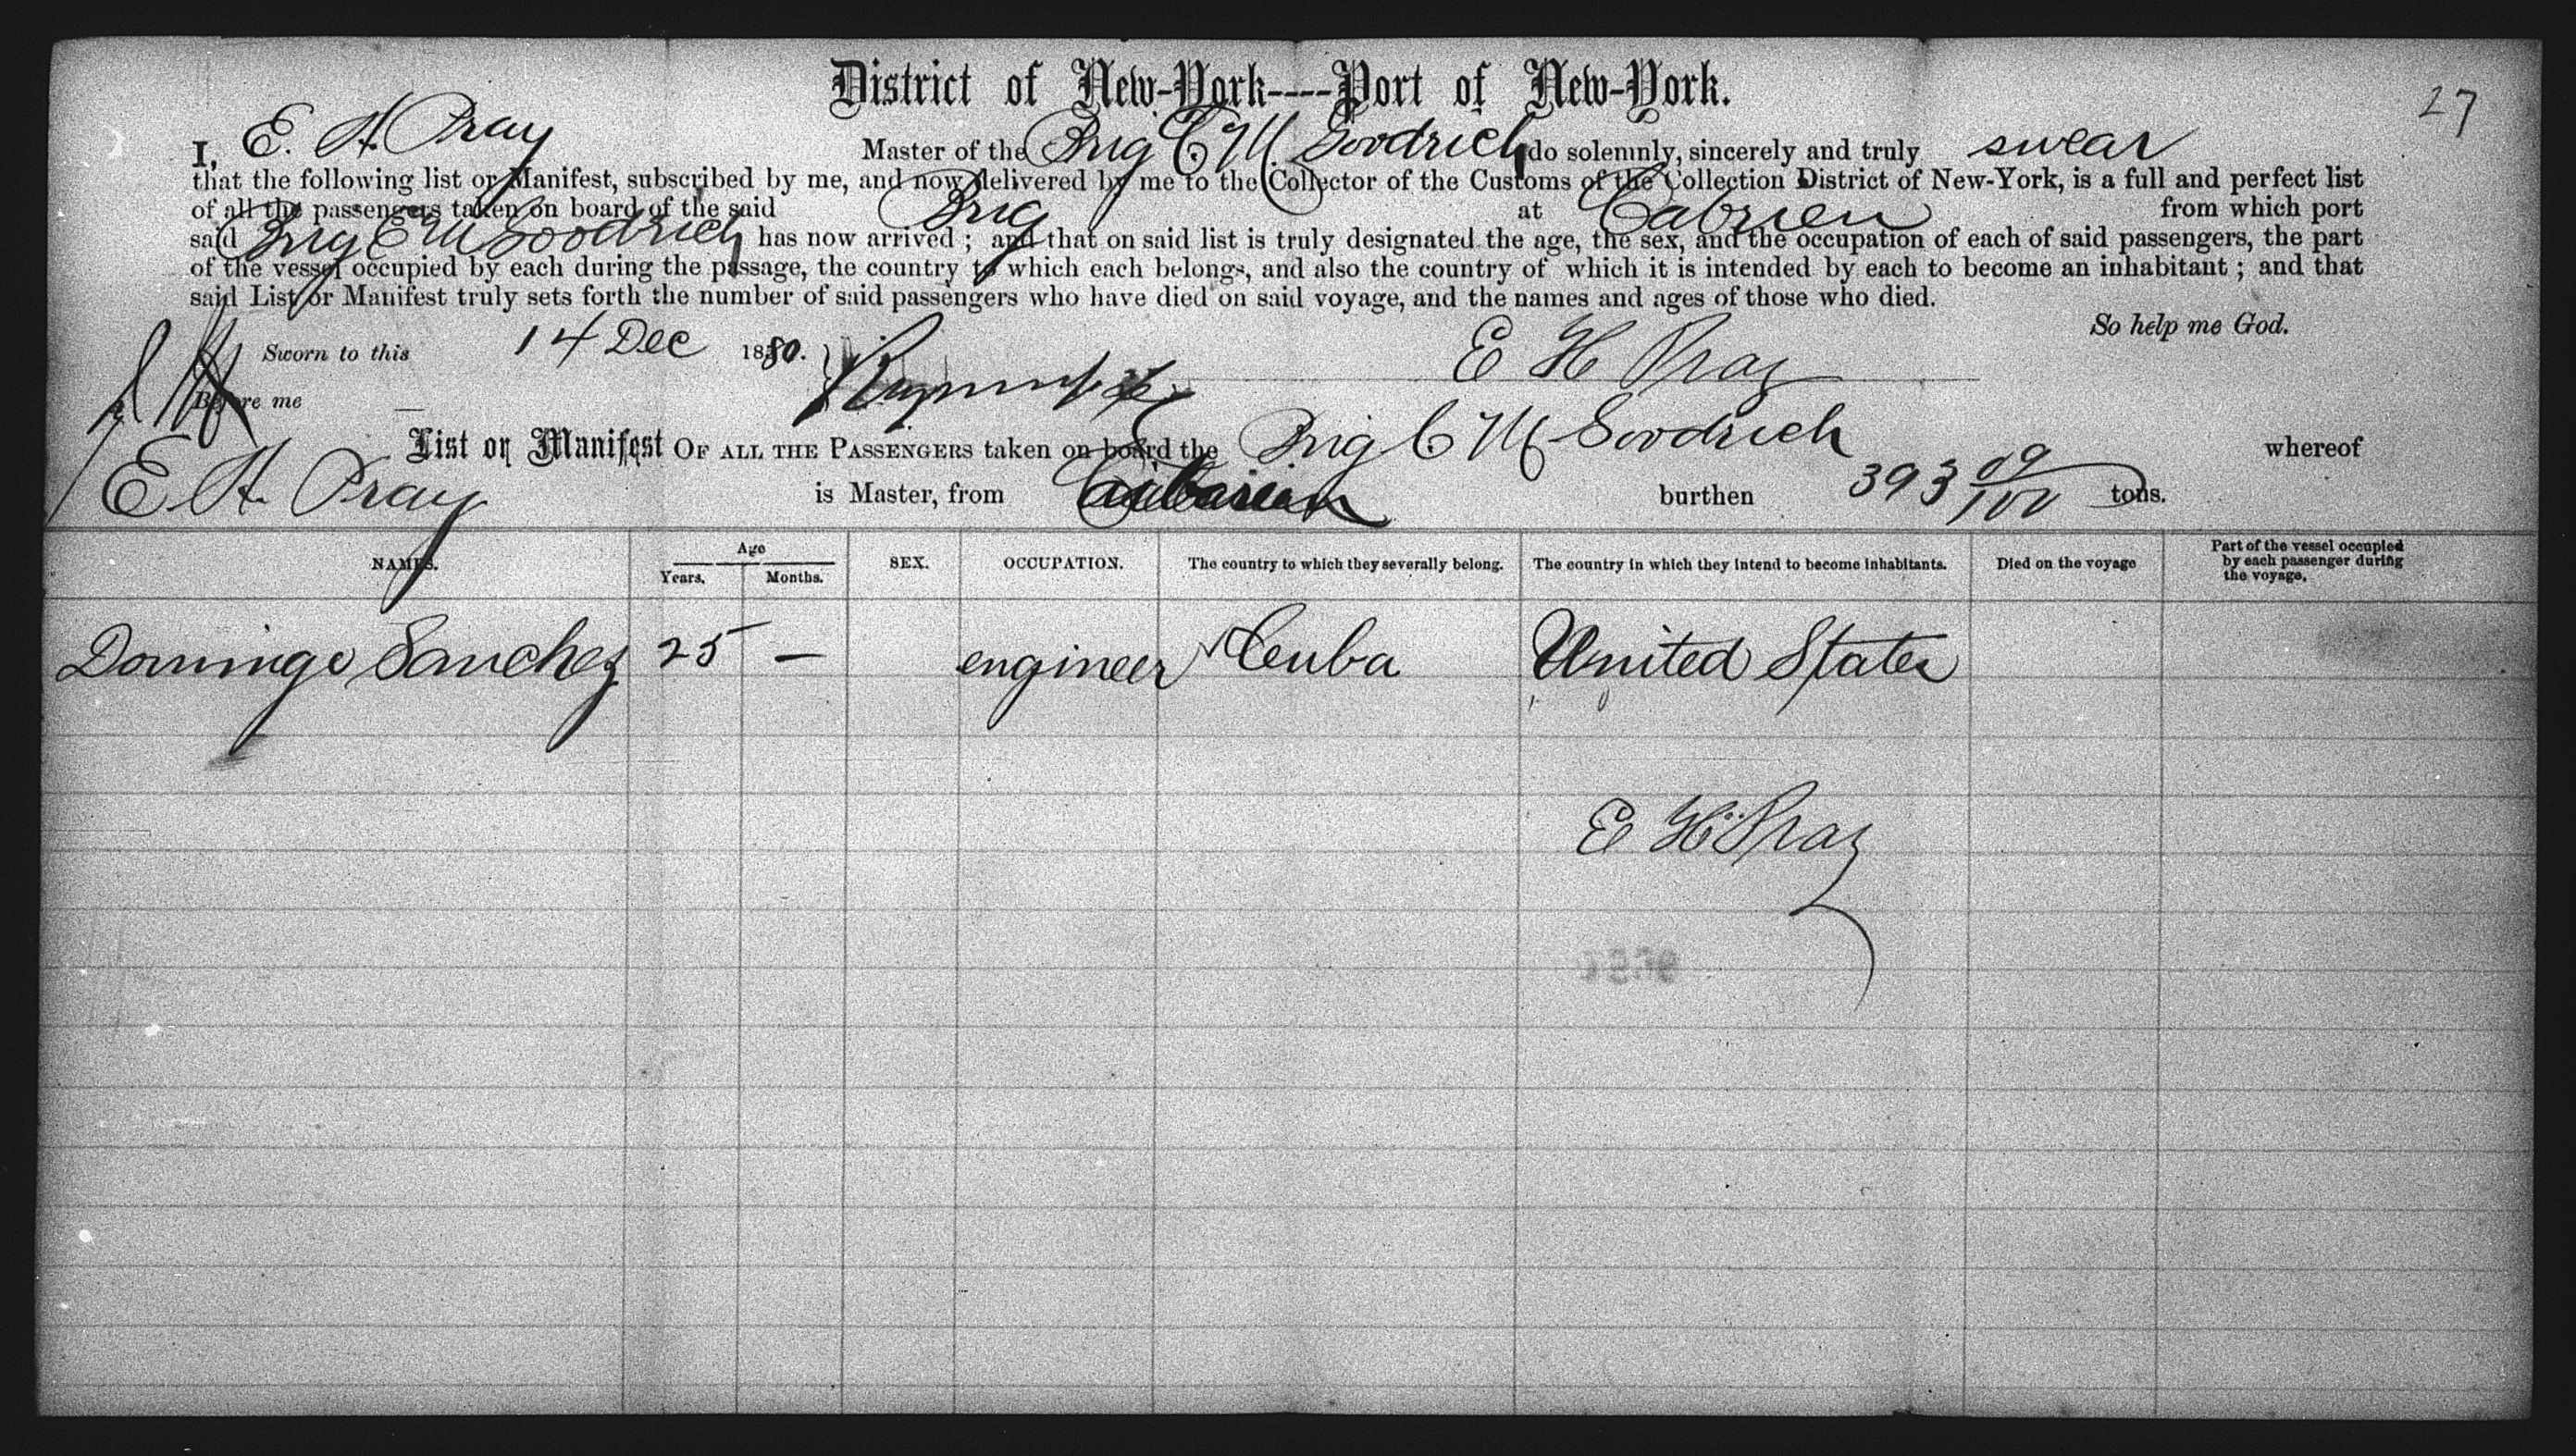 District of New-York----Port of New-York.
27
I, E. H. Pray Master of the Brig C. M. Goodrich do solemnly, sincerely and truly swear
that the following list or Manifest, subscribed by me, and now delivered by me to the Collector of the Customs of the Collection District of New-York, is a full and perfect list
of all the passengers taken on board of the said Brig at Cabrien from which port
said Brig C M Goodrich has now arrived ; and that on said list is truly designated the age, the sex, and the occupation of each of said passengers, the part
of the vessel occupied by each during the passage, the country to which each belongs, and also the country of which it is intended by each to become an inhabitant ; and that
said List or Manifest truly sets forth the number of said passengers who have died on said voyage, and the names and ages of those who died.
So help me God.
Sworn to this 14 Dec 1880.
E H Pray
Before me
List or Manifest OF ALL THE PASSENGERS taken on board the Brig C M Goodrich whereof
E. H. Pray is Master, from Caibarien burthen 393 09/100 tons.
NAMES. Age Years. Months. SEX. OCCUPATION. The country to which they severally belong. The country in which they intend to become inhabitants. Died on the voyage Part of the vessel occupied by each passenger during the voyage.
Domingo Sanchez 25 — engineer Cuba United States
E H Pray